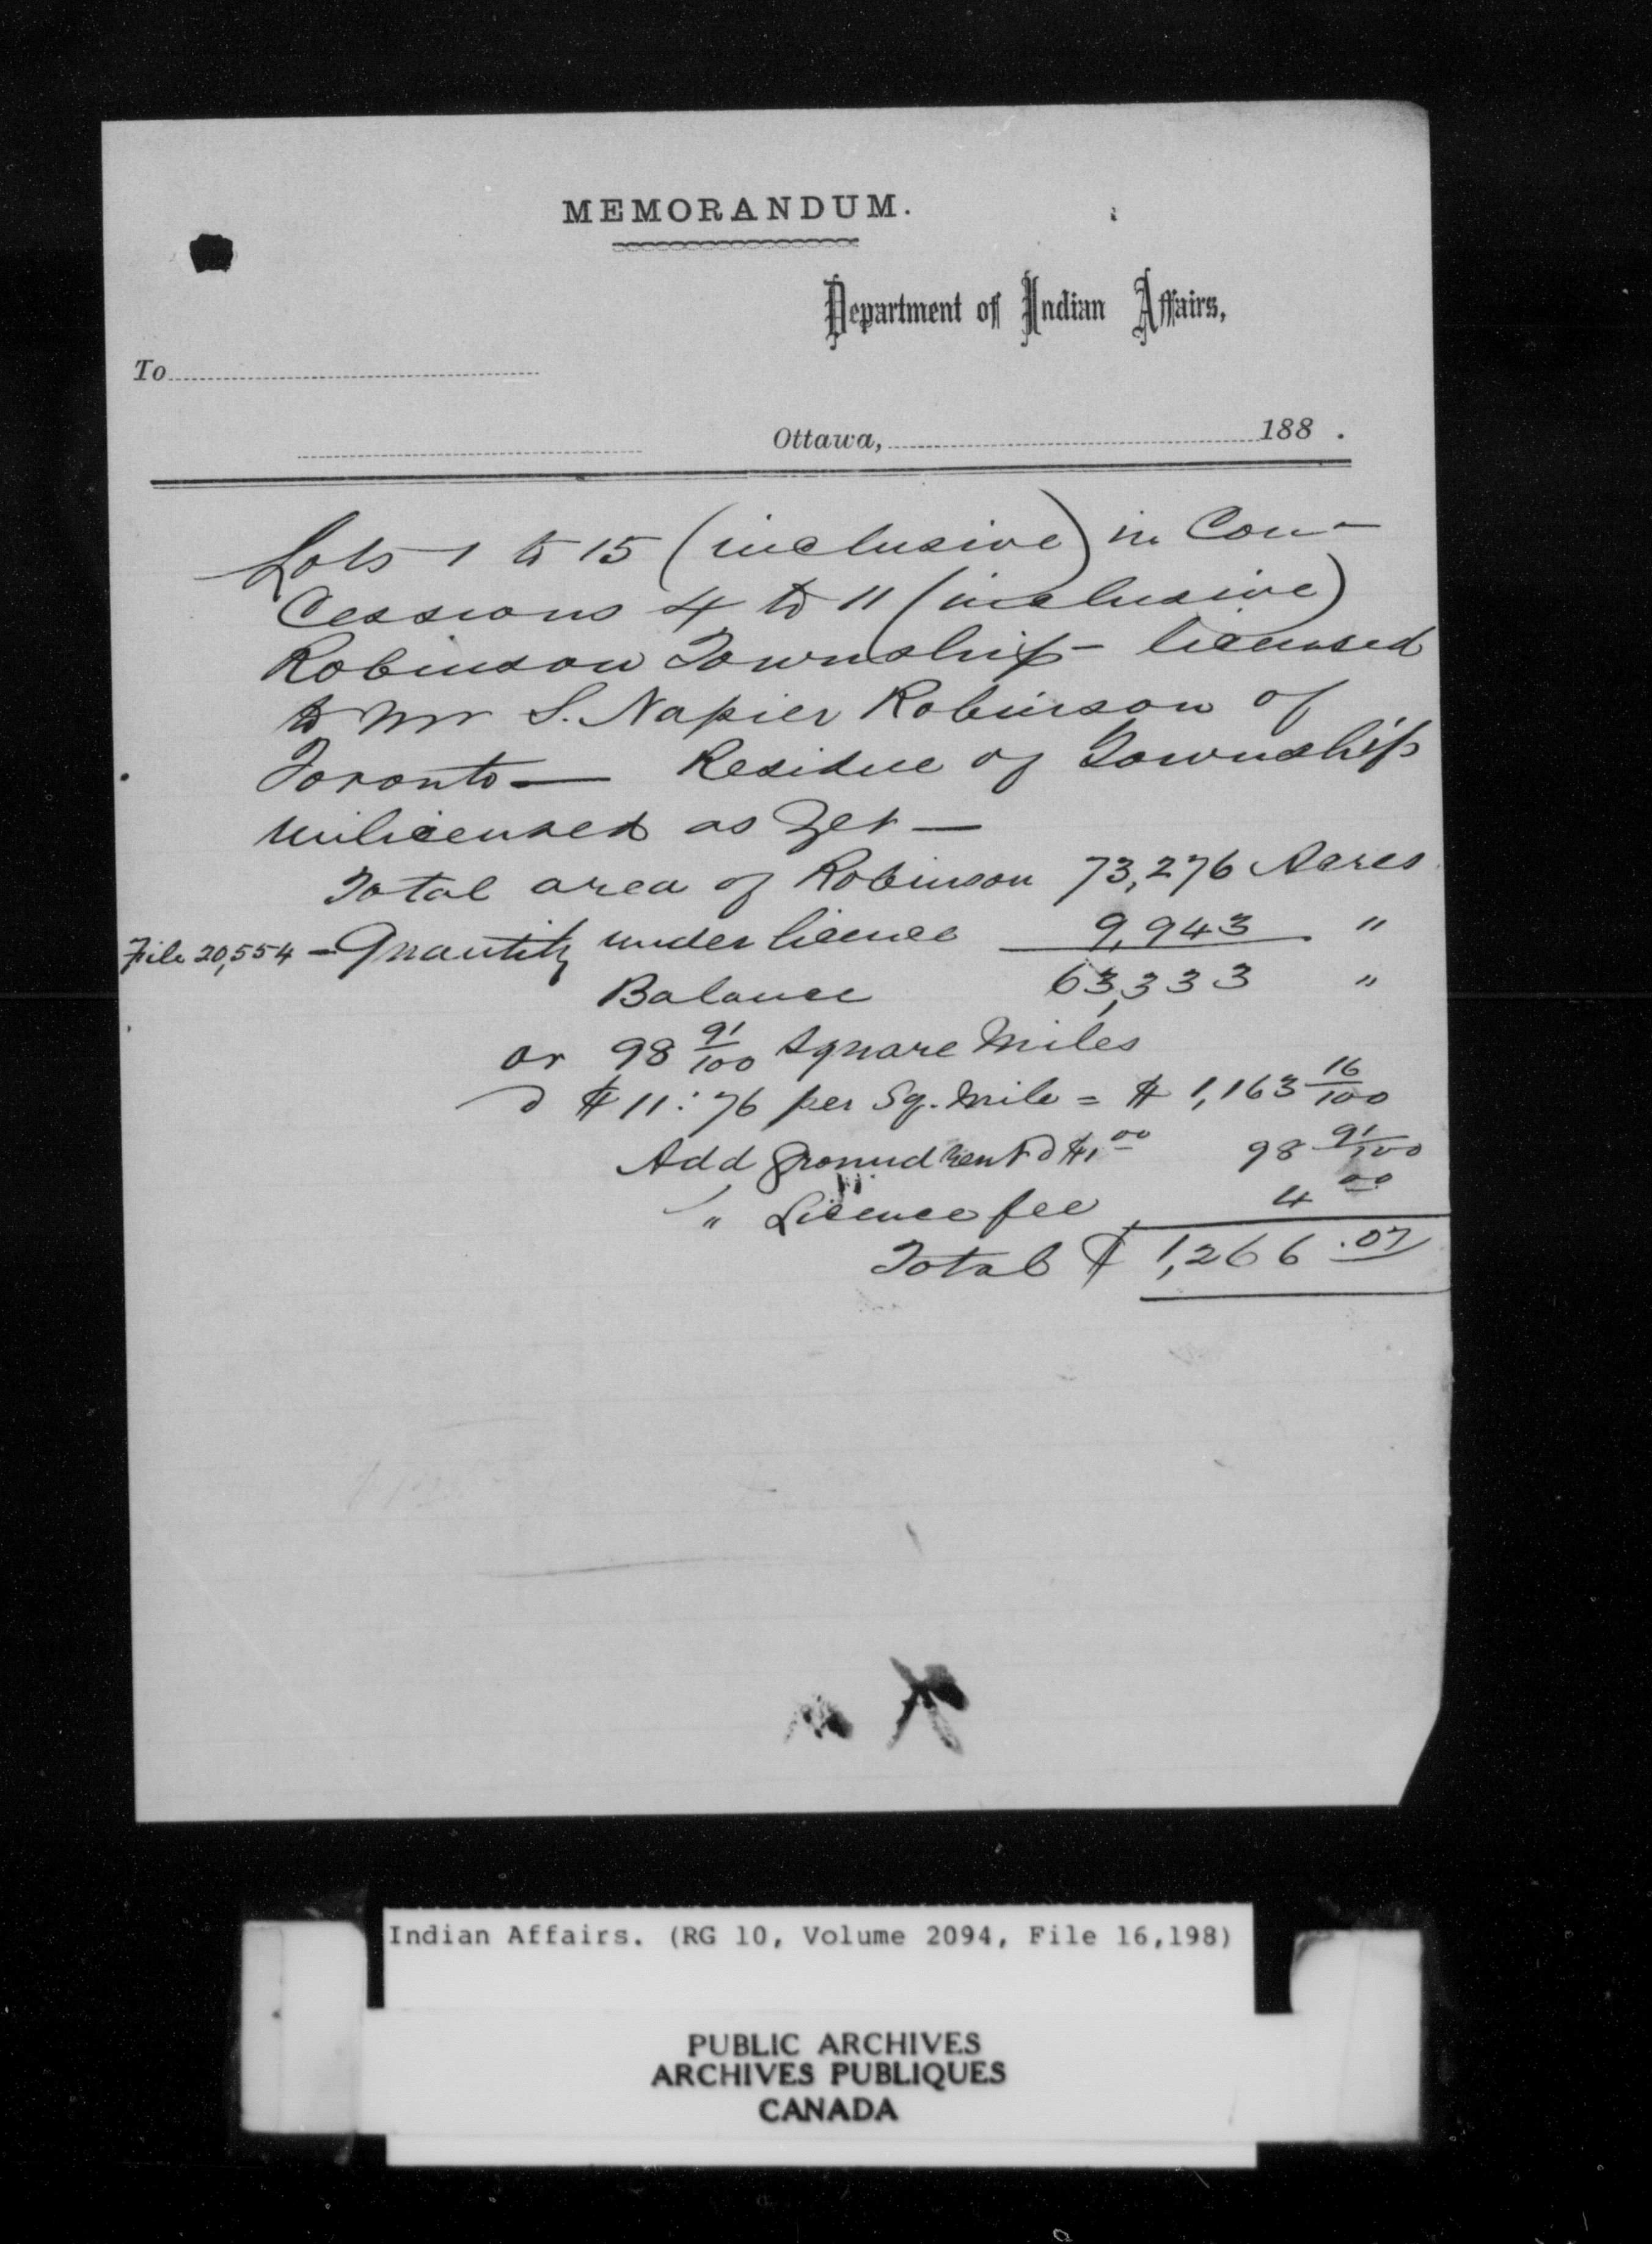 MEMORANDUM.
Department of Indian Affairs,
To
Ottawa, 188 .
Lots 1 to 15 (inclusive) in Con-
cessions 4 to 11 (inclusive)
Robinson Township - licensed
to Mr S. Napier Robinson of
Toronto — Residue of Township
unlicensed as yet —
Total area of Robinson 73,276 Acres
File 20,554 - Quantity under licence 9,943 "
Balance 63,333 "
or 98 91/100 Square Miles
@ $11:76 per Sq. Mile = $ 1,163 16/100
Add ground rent @ $1 00 98 91/100
" Licence fee 4 00
Total $ 1,266 .07
Indian Affairs. (RG 10, Volume 2094, File 16,198)
PUBLIC ARCHIVES
ARCHIVES PUBLIQUES
CANADA